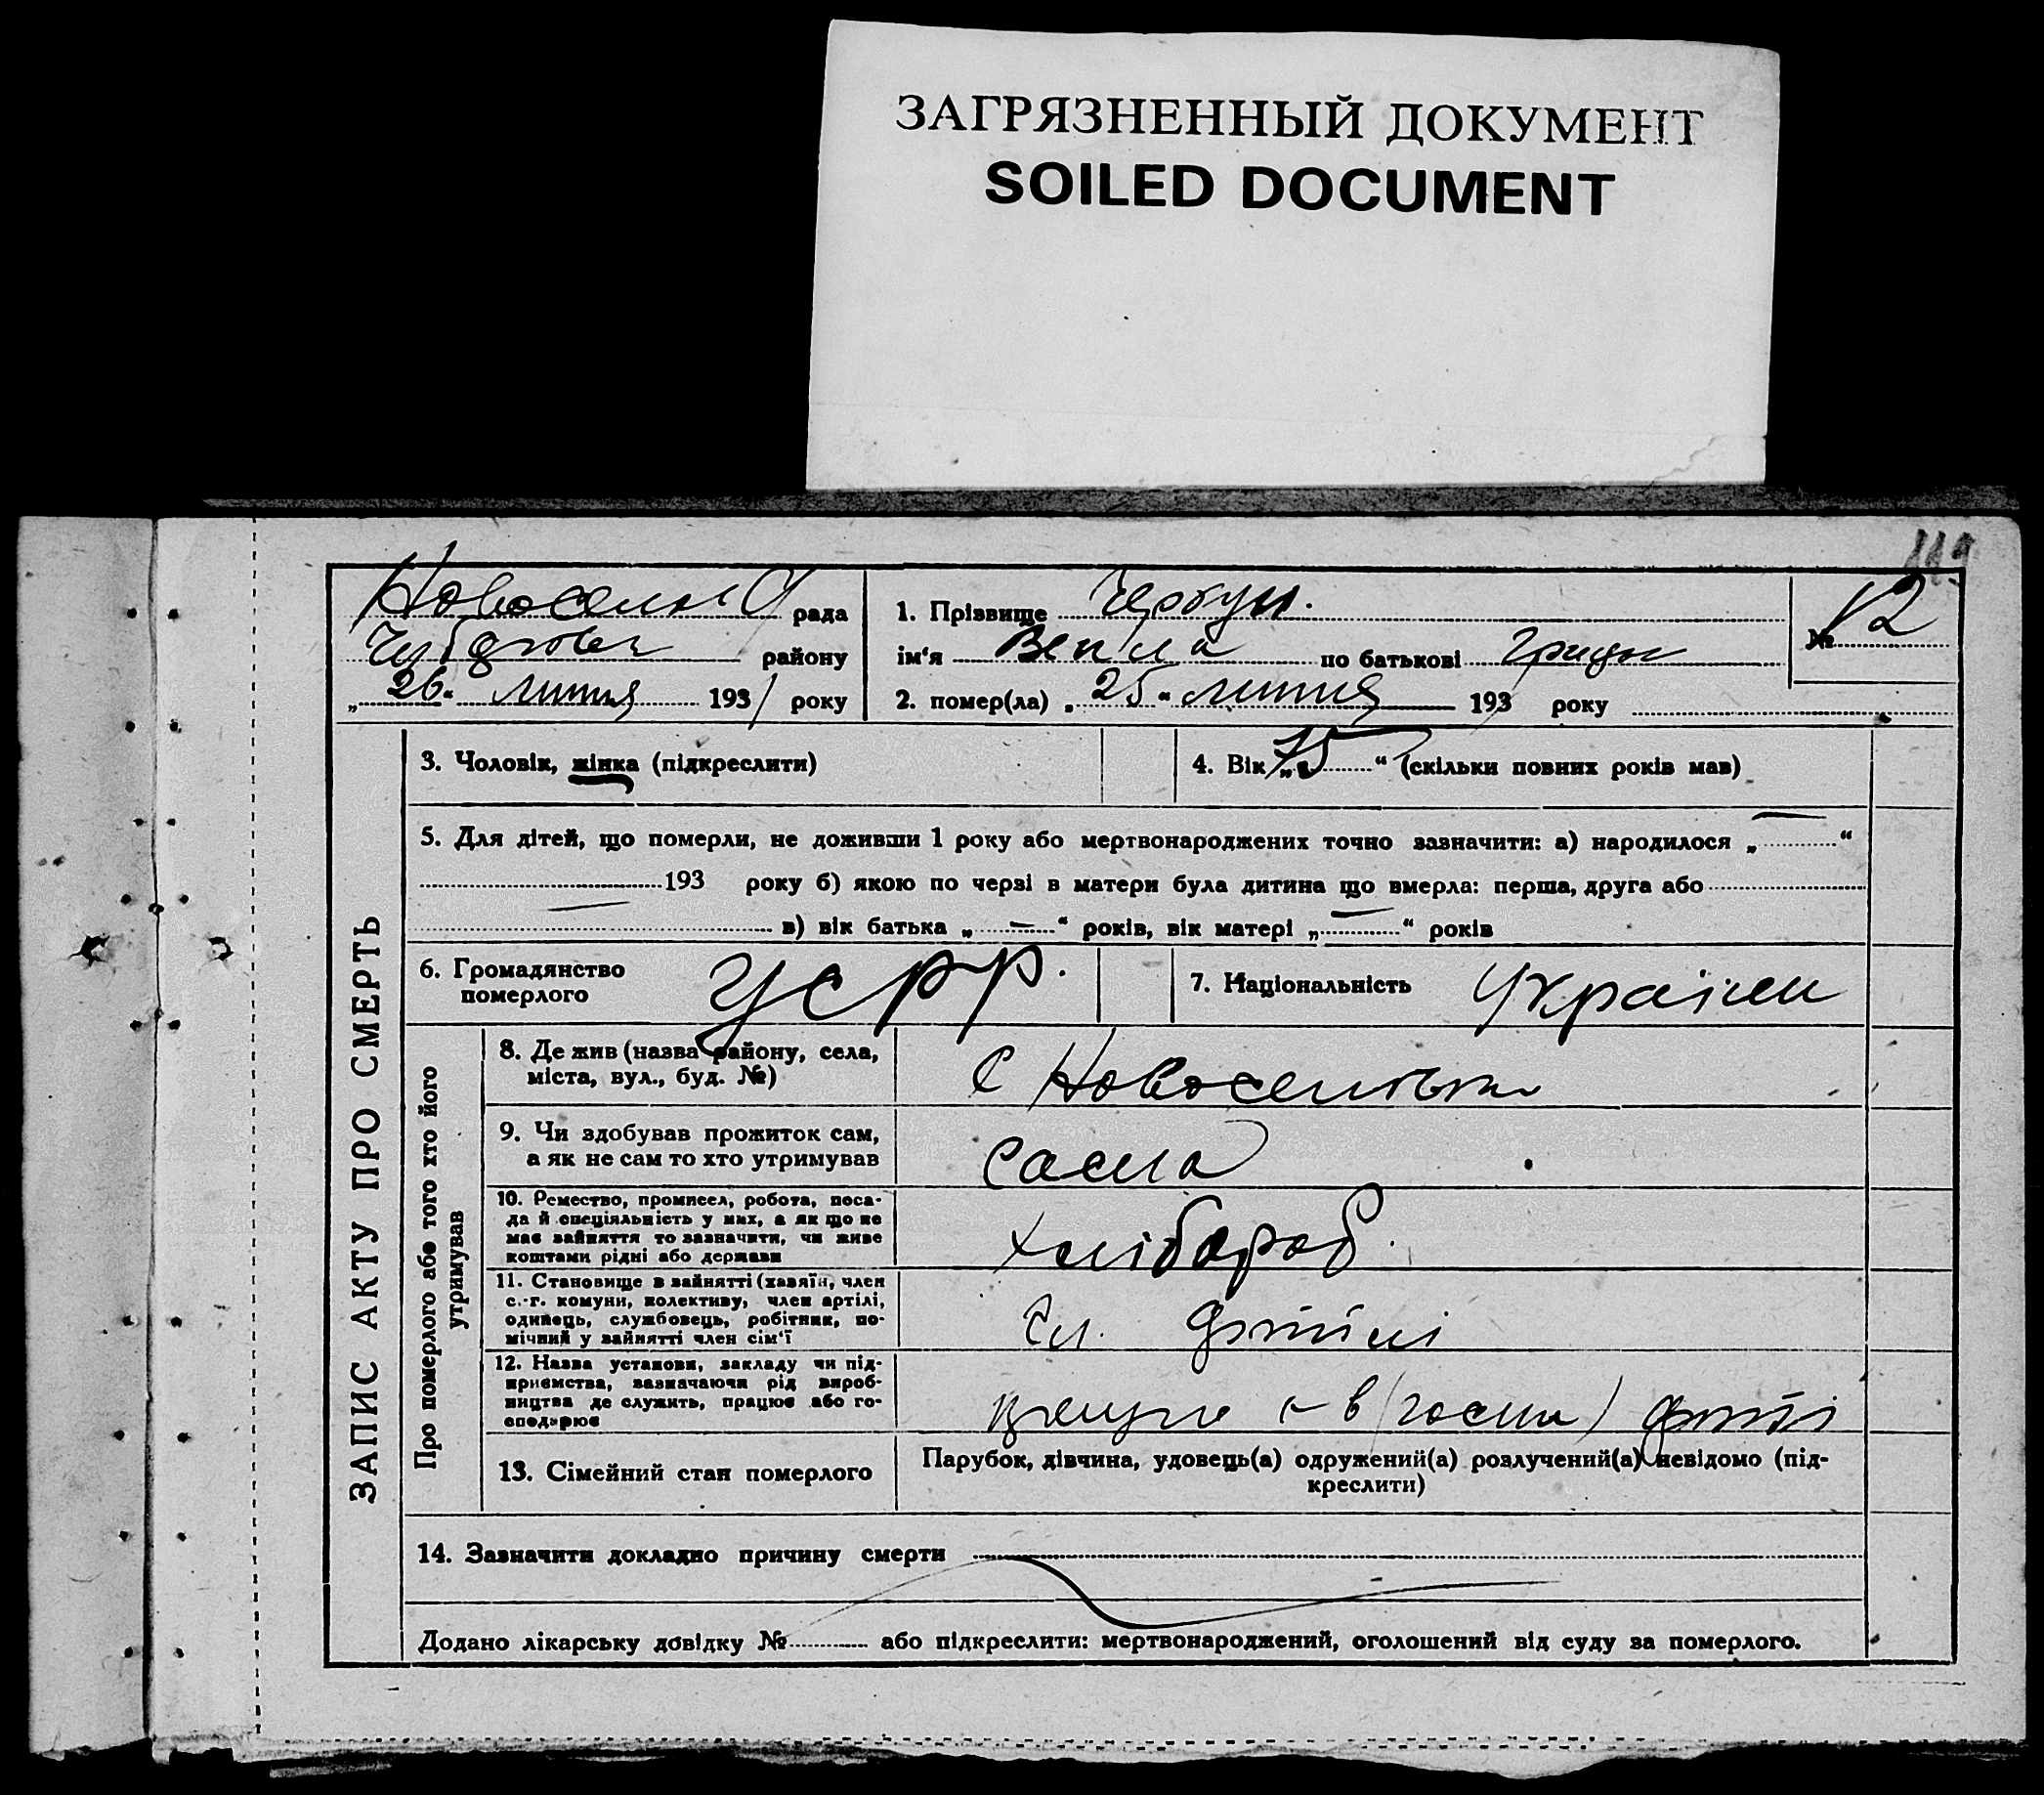 ЗАГРЯЗНЕННЫЙ ДОКУМЕНТ
SOILED DOCUMENT
119
рада
району
„26“ липня 1931 року
1. Прізвище
ім'я по батькові
2. помер(ла) „25“ липня 193 року
№ 12
ЗАПИС АКТУ ПРО СМЕРТЬ
3. Чоловік, жінка (підкреслити)
4. Вік „75“ (скільки повних років мав)
5. Для дітей, що померли, не доживши 1 року або мертвонароджених точно зазначити: а) народилося „ — “
193 року б) якою по черзі в матери була дитина що вмерла: перша, друга або
— в) вік батька „ — “ років, вік матері „ — “ років
6. Громадянство
померлого
УСРР.
7. Національність
Україн
Про померлого або того хто його
утримував
8. Де жив (назва району, села,
міста, вул., буд. №)
с
9. Чи здобував прожиток сам,
а як не сам то хто утримував
сама
10. Ремество, промисел, робота, поса-
да й спеціяльність у них, а як що не
має зайняття то зазначити, чи живе
коштами рідні або держави
хлібороб.
11. Становище в зайнятті (хазяїн, член
с.-г. комуни, колективу, член артілі,
одинець, службовець, робітник, по-
мічний у зайнятті член сім'ї
Чл. артілі
12. Назва установи, закладу чи під-
приємства, зазначаючи рід вироб-
ництва де служить, працює або го-
сподарює
13. Сімейний стан померлого
Парубок, дівчина, удовець(а) одружений(а) розлучений(а) невідомо (під-
креслити)
14. Зазначити докладно причину смерти
Додано лікарську довідку № або підкреслити: мертвонароджений, оголошений від суду за померлого.